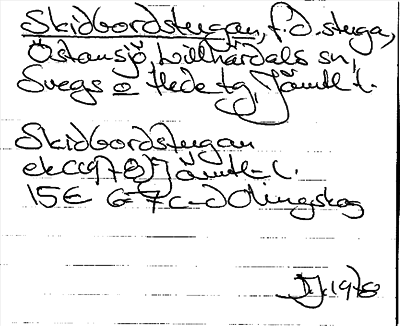 Skidbordstugan, f.d. stuga,
Östansjö, Lillhärdals sn,
Svegs o Hede tg, Jämtl l.
Skidbordstugan
ek (1978) Jämtl l.
15E 6-7c-d Olingskog
1978